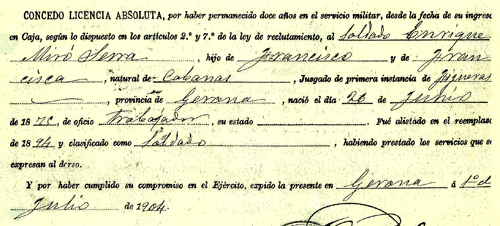 CONCEDO LICENCIA ABSOLUTA, por haber permanecido doce años en el servicio militar, desde la fecha de su ingreso
en Caja, según lo dispuesto en los artículos 2.º y 7.º de la ley de reclutamiento, al Soldado Enrique
Miró Serra hijo de Francisco y de Fran
cisca, natural de Cabanas, Juzgado de primera instancia de Figueras
, provincia de Gerona, nació el 20 de Junio
de 1875, de oficio Trabajador, su estado . Fué alistado en el reemplazo
de 1894 y clasificado como Soldado, habiendo prestado los servicios que se
expresan al dorso.
Y por haber cumplido su compromiso en el Ejército, expido la presente en Gerona á 1º de
Julio de 1904.